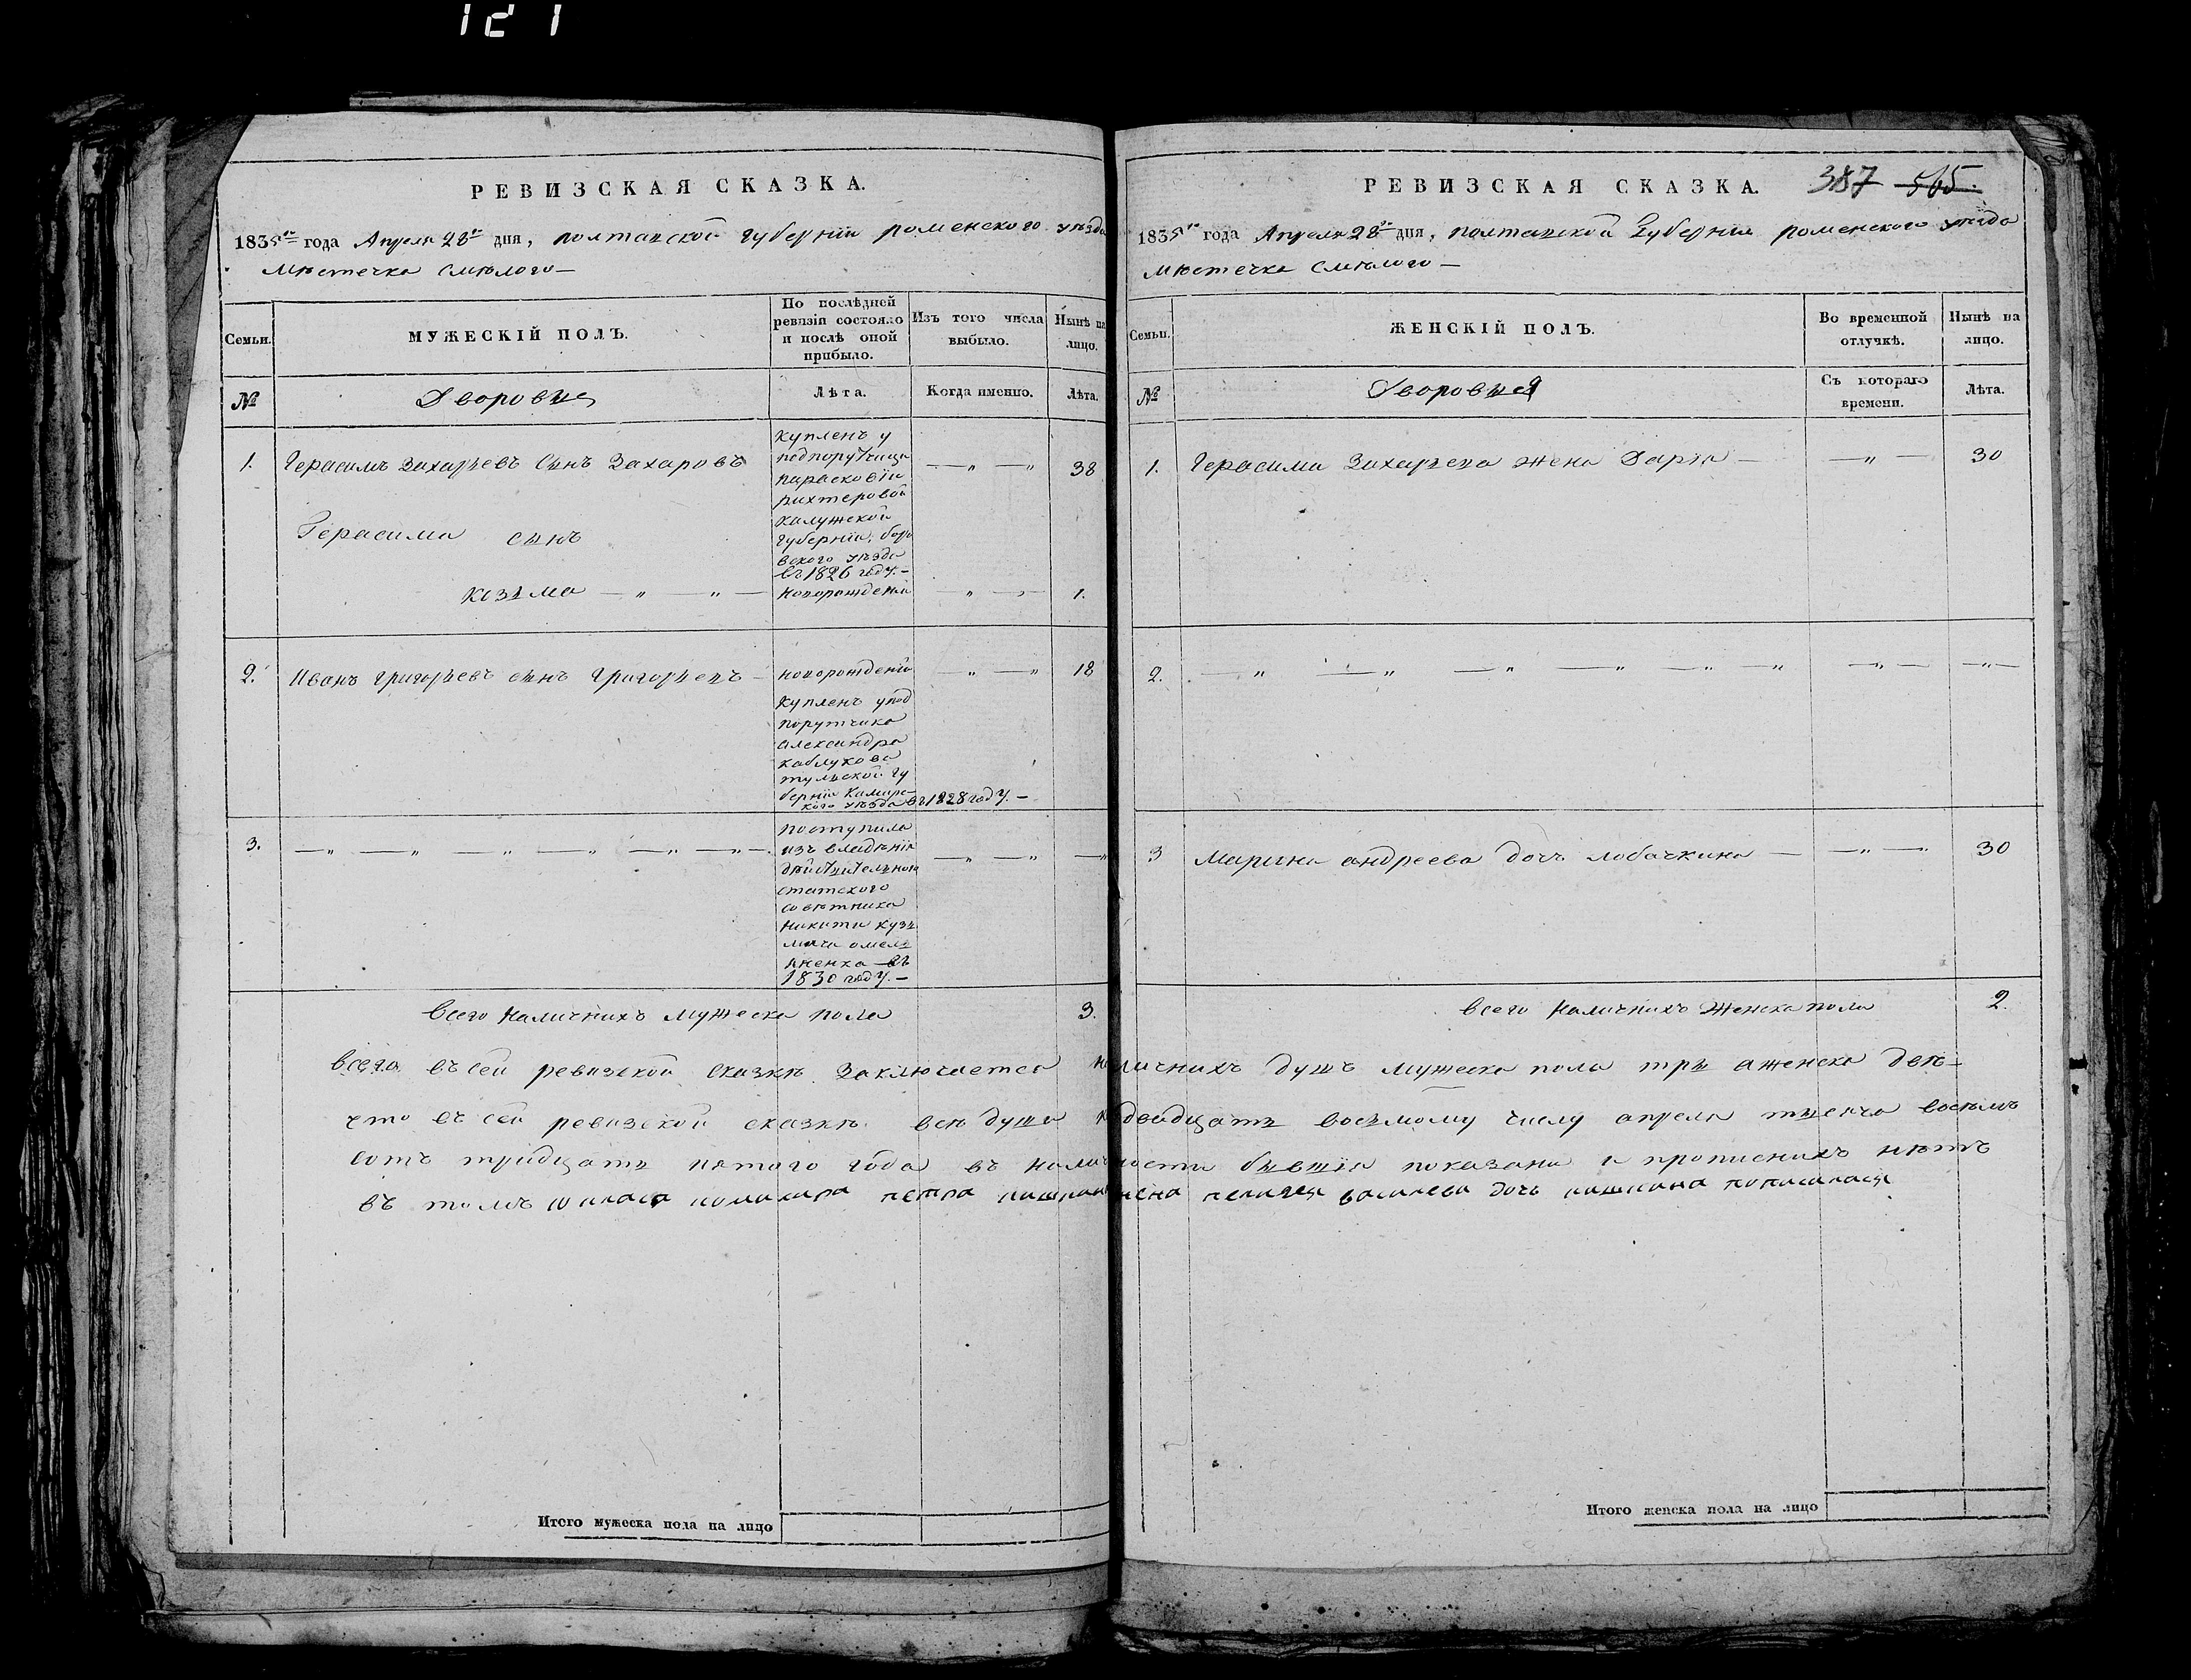 121
РЕВИЗСКАЯ СКАЗКА.
1835го года Апреля 28го дня, полтавской губернїи роменского уѣзда
мѣстечка смѣлого —
Семьи.
МУЖЕСКІЙ ПОЛЪ.
По послѣдней ревизіи состояло и послѣ оной прибыло.
Изъ того числа выбыло.
Нынѣ на лицо.
№
Дворовые
Лѣта.
Когда именно.
Лѣта.
1. Герасимъ Захарьевъ сынъ Захаровъ
купленъ у
подпорутчица
парасковїи
рихтеровой
калужской
губернїи, боро
вского уѣзда
въ 1826 году. —
— " — "
38
Герасима сынъ
козьма — " — " —
новорожденъ
— " — " —
1.
2. Иванъ григорьевъ сынъ григорьевъ —
новорожденъ
купленъ упод
порутчика
александра
каблукова
тульской гу
бернїи Кашир
кого уѣзда въ 1828 году. —
— " — "
18
3. — " — " — " — " — " — " —
поступила
изъ владѣнїя
дѣйствительного
статского
совѣтника
никити кузь
мича омель
яненка въ
1830 году. —
— " — "
— "
Всего наличнихъ мужеска пола 3.
РЕВИЗСКАЯ СКАЗКА. 387 565.
1835го года Апреля 28го дня, полтавской Губернїи роменского уѣзда
мѣстечка смѣлого —
Семьи.
ЖЕНСКІЙ ПОЛЪ.
Во временной отлучкѣ.
Нынѣ на лицо.
№
Дворовыя
Съ котораго времени.
Лѣта.
1. Герасима Захарьева жена Дарїя — — " — 30
2. — " — " — " — " — " — " — " — — " —
3 Марина андреева дочъ лобачкина — — " — 30
всего наличнихъ женска пола 2.
всего въ сей ревизской сказкѣ заключается наличнихъ душъ мужеска пола тры а женска двѣ —
что въ сей ревизской сказкѣ всѣ души къ двадцать восьмому числу апреля тысеча восѣмъ
сотъ тридцать пятого года въ наличности бывшїя показани и прописнихъ нѣтъ
въ томъ 10 класа петра жена пелагея василева дочь кашкина
Итого мужеска пола на лицо
Итого женска пола на лицо